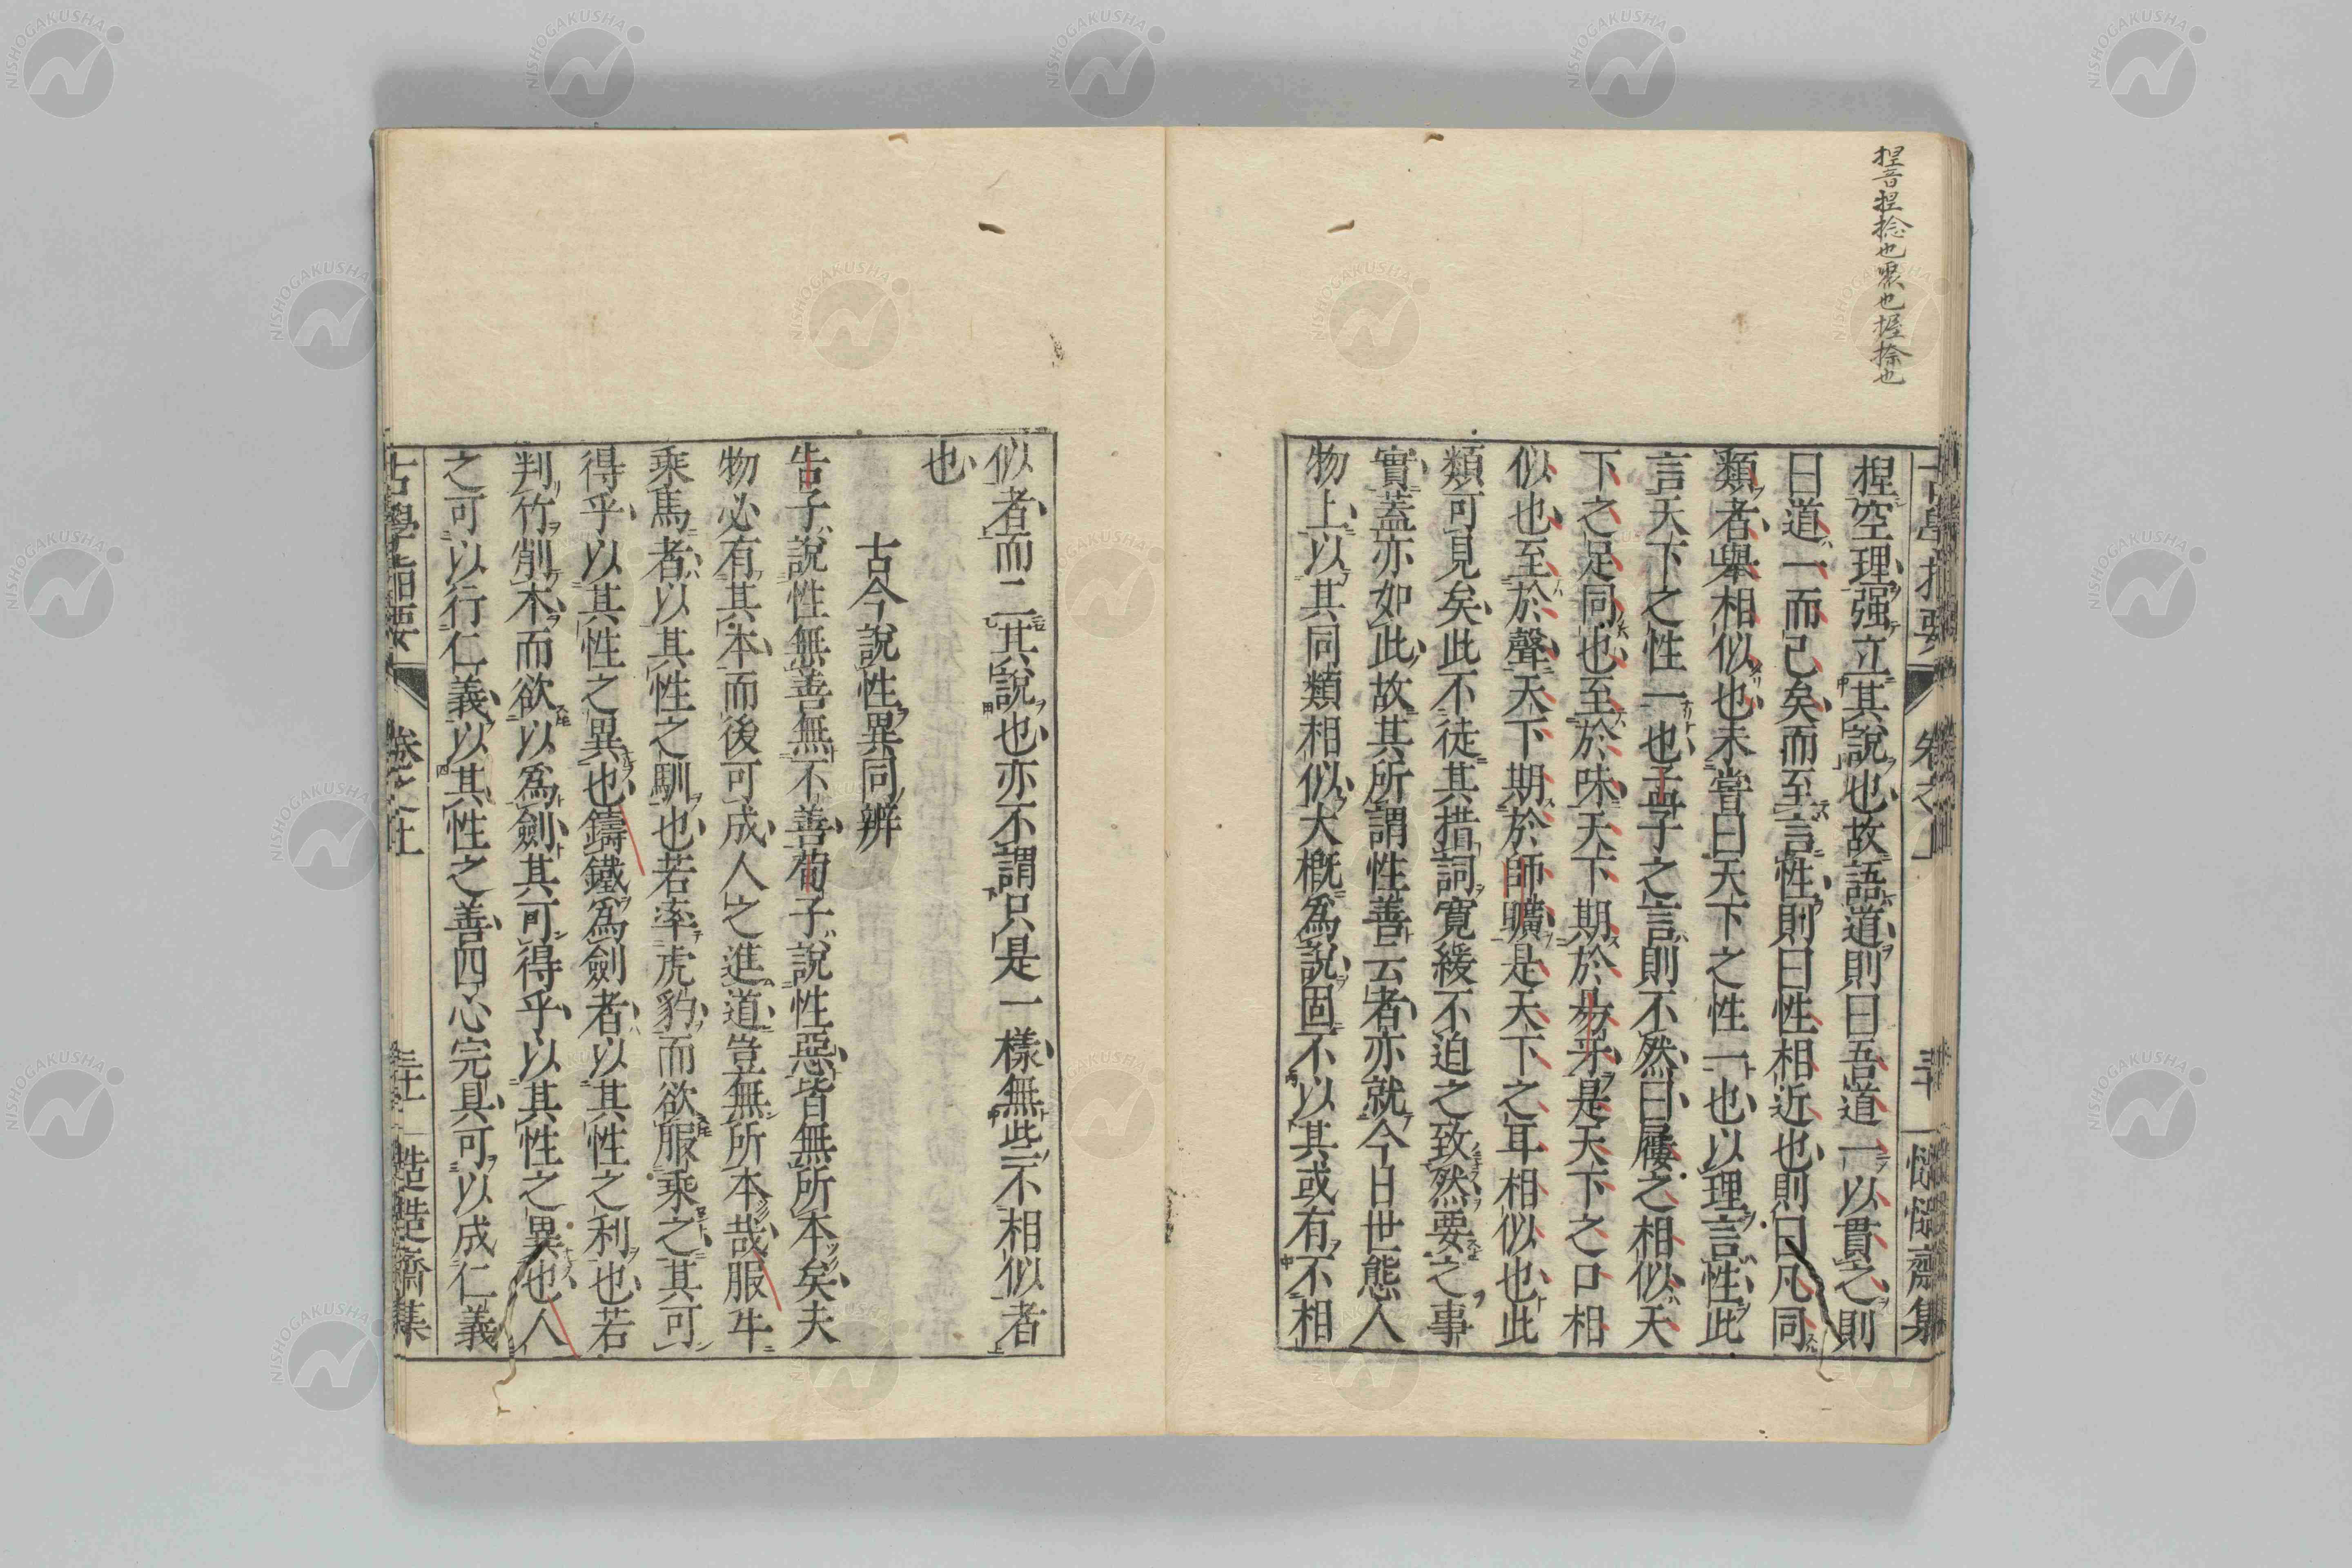 捏音捏捻也㗧也握捺也
古學指要
卷之上
三十
慥慥齋集
捏空理强立其説也故語道則曰吾道一以貫之則
曰道一而已矣而至言性則曰性相近也則曰凡同
類者舉相似也未嘗曰天下之性一也以理言性此
言天下之性一也孟子之言則不然曰屨之相似天
下之足同也至於味天下期於易牙是天下之口相
似也至於聲天下期於師曠是天下之耳相似也此
類可見矣此不徒其措詞寬緩不迫之致然要之事
實蓋亦如此故其所謂性善云者亦就今日世態人
物上以其同類相似大概爲説固不以其或有不相
似者而二其説也亦不謂只是一樣無些不相似者
也
古今説性異同辨
告子説性無善無不善荀子説性惡皆無所本矣夫
物必有其本而後可成人之進道豈無所本哉服牛
乘馬者以其性之馴也若率虎豹而欲服乘之其可
得乎以其性之異也鑄鐵爲劍者以其性之利也若
判竹削木而欲以爲劍其可得乎以其性之異也人
之可以行仁義以其性之善四心完具可以成仁義
古學指要
卷之上
三十一
慥慥齋集
NISHOGAKUSHA